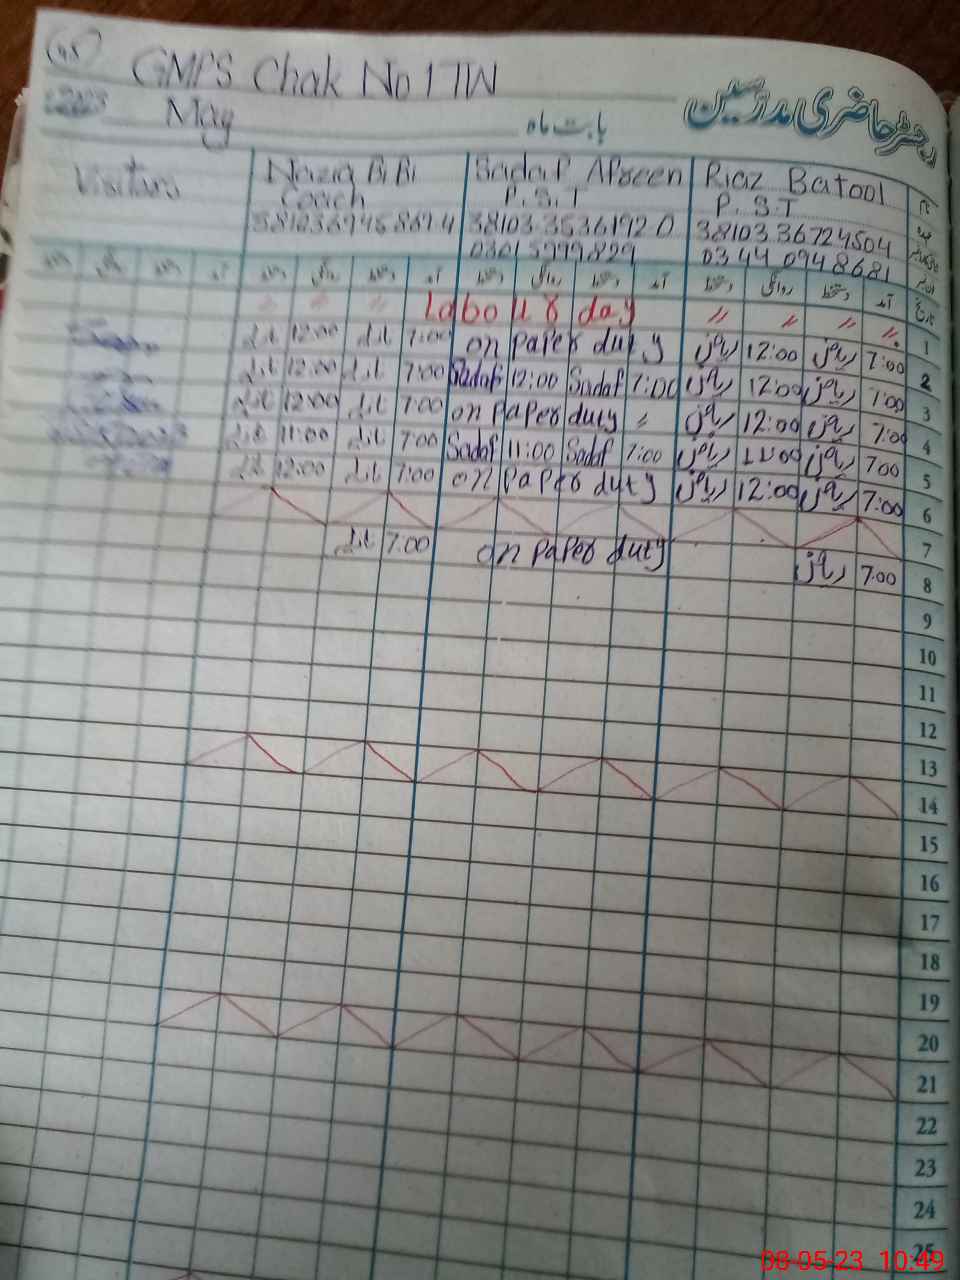 GMPS Chak No 17TW
2023 May بابت ماہ رجسٹر حاضری مدرسین
Visitors Nazia BiBi Sadaf Afseen Riaz Batool نام
Coach P.S.T P.S.T عہدہ
38103.3536192.0 38103.36724504
0301 5999829 0344 0948681
دستخط روانگی دستخط آمد دستخط روانگی دستخط آمد دستخط روانگی دستخط آمد دستخط روانگی دستخط آمد تاریخ
〃 〃 〃 Labour day 〃 〃 〃 〃 1
12:00 7:00 on paper duty ریاض 12:00 ریاض 7:00 2
12:00 7:00 Sadaf 12:00 Sadaf 7:00 ریاض 12:00 ریاض 7:00 3
12:00 7:00 on paper duty 〃 ریاض 12:00 ریاض 7:00 4
11:00 7:00 Sadaf 11:00 Sadaf 7:00 ریاض ریاض 7:00 5
12:00 7:00 on paper duty ریاض 12:00 ریاض 7:00 6
7
7:00 on paper duty ریاض 7:00 8
9
10
11
12
13
14
15
16
17
18
19
20
21
22
23
24
25
08-05-23 10:49